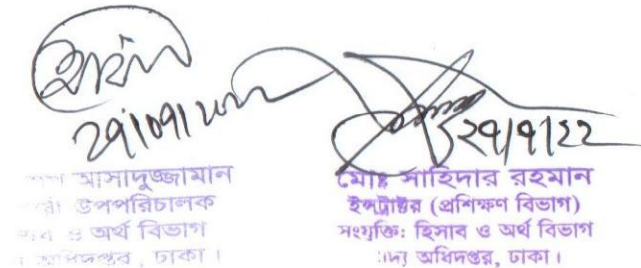 ২৭/০৭/২০২২
আসাদুজ্জামান
উপপরিচালক
ও অর্থ বিভাগ
অধিদপ্তর, ঢাকা।
২৭/৭/২২
মোঃ সাহিদার রহমান
ইন্সট্রাক্টর (প্রশিক্ষণ বিভাগ)
সংযুক্তি: হিসাব ও অর্থ বিভাগ
অধিদপ্তর, ঢাকা।